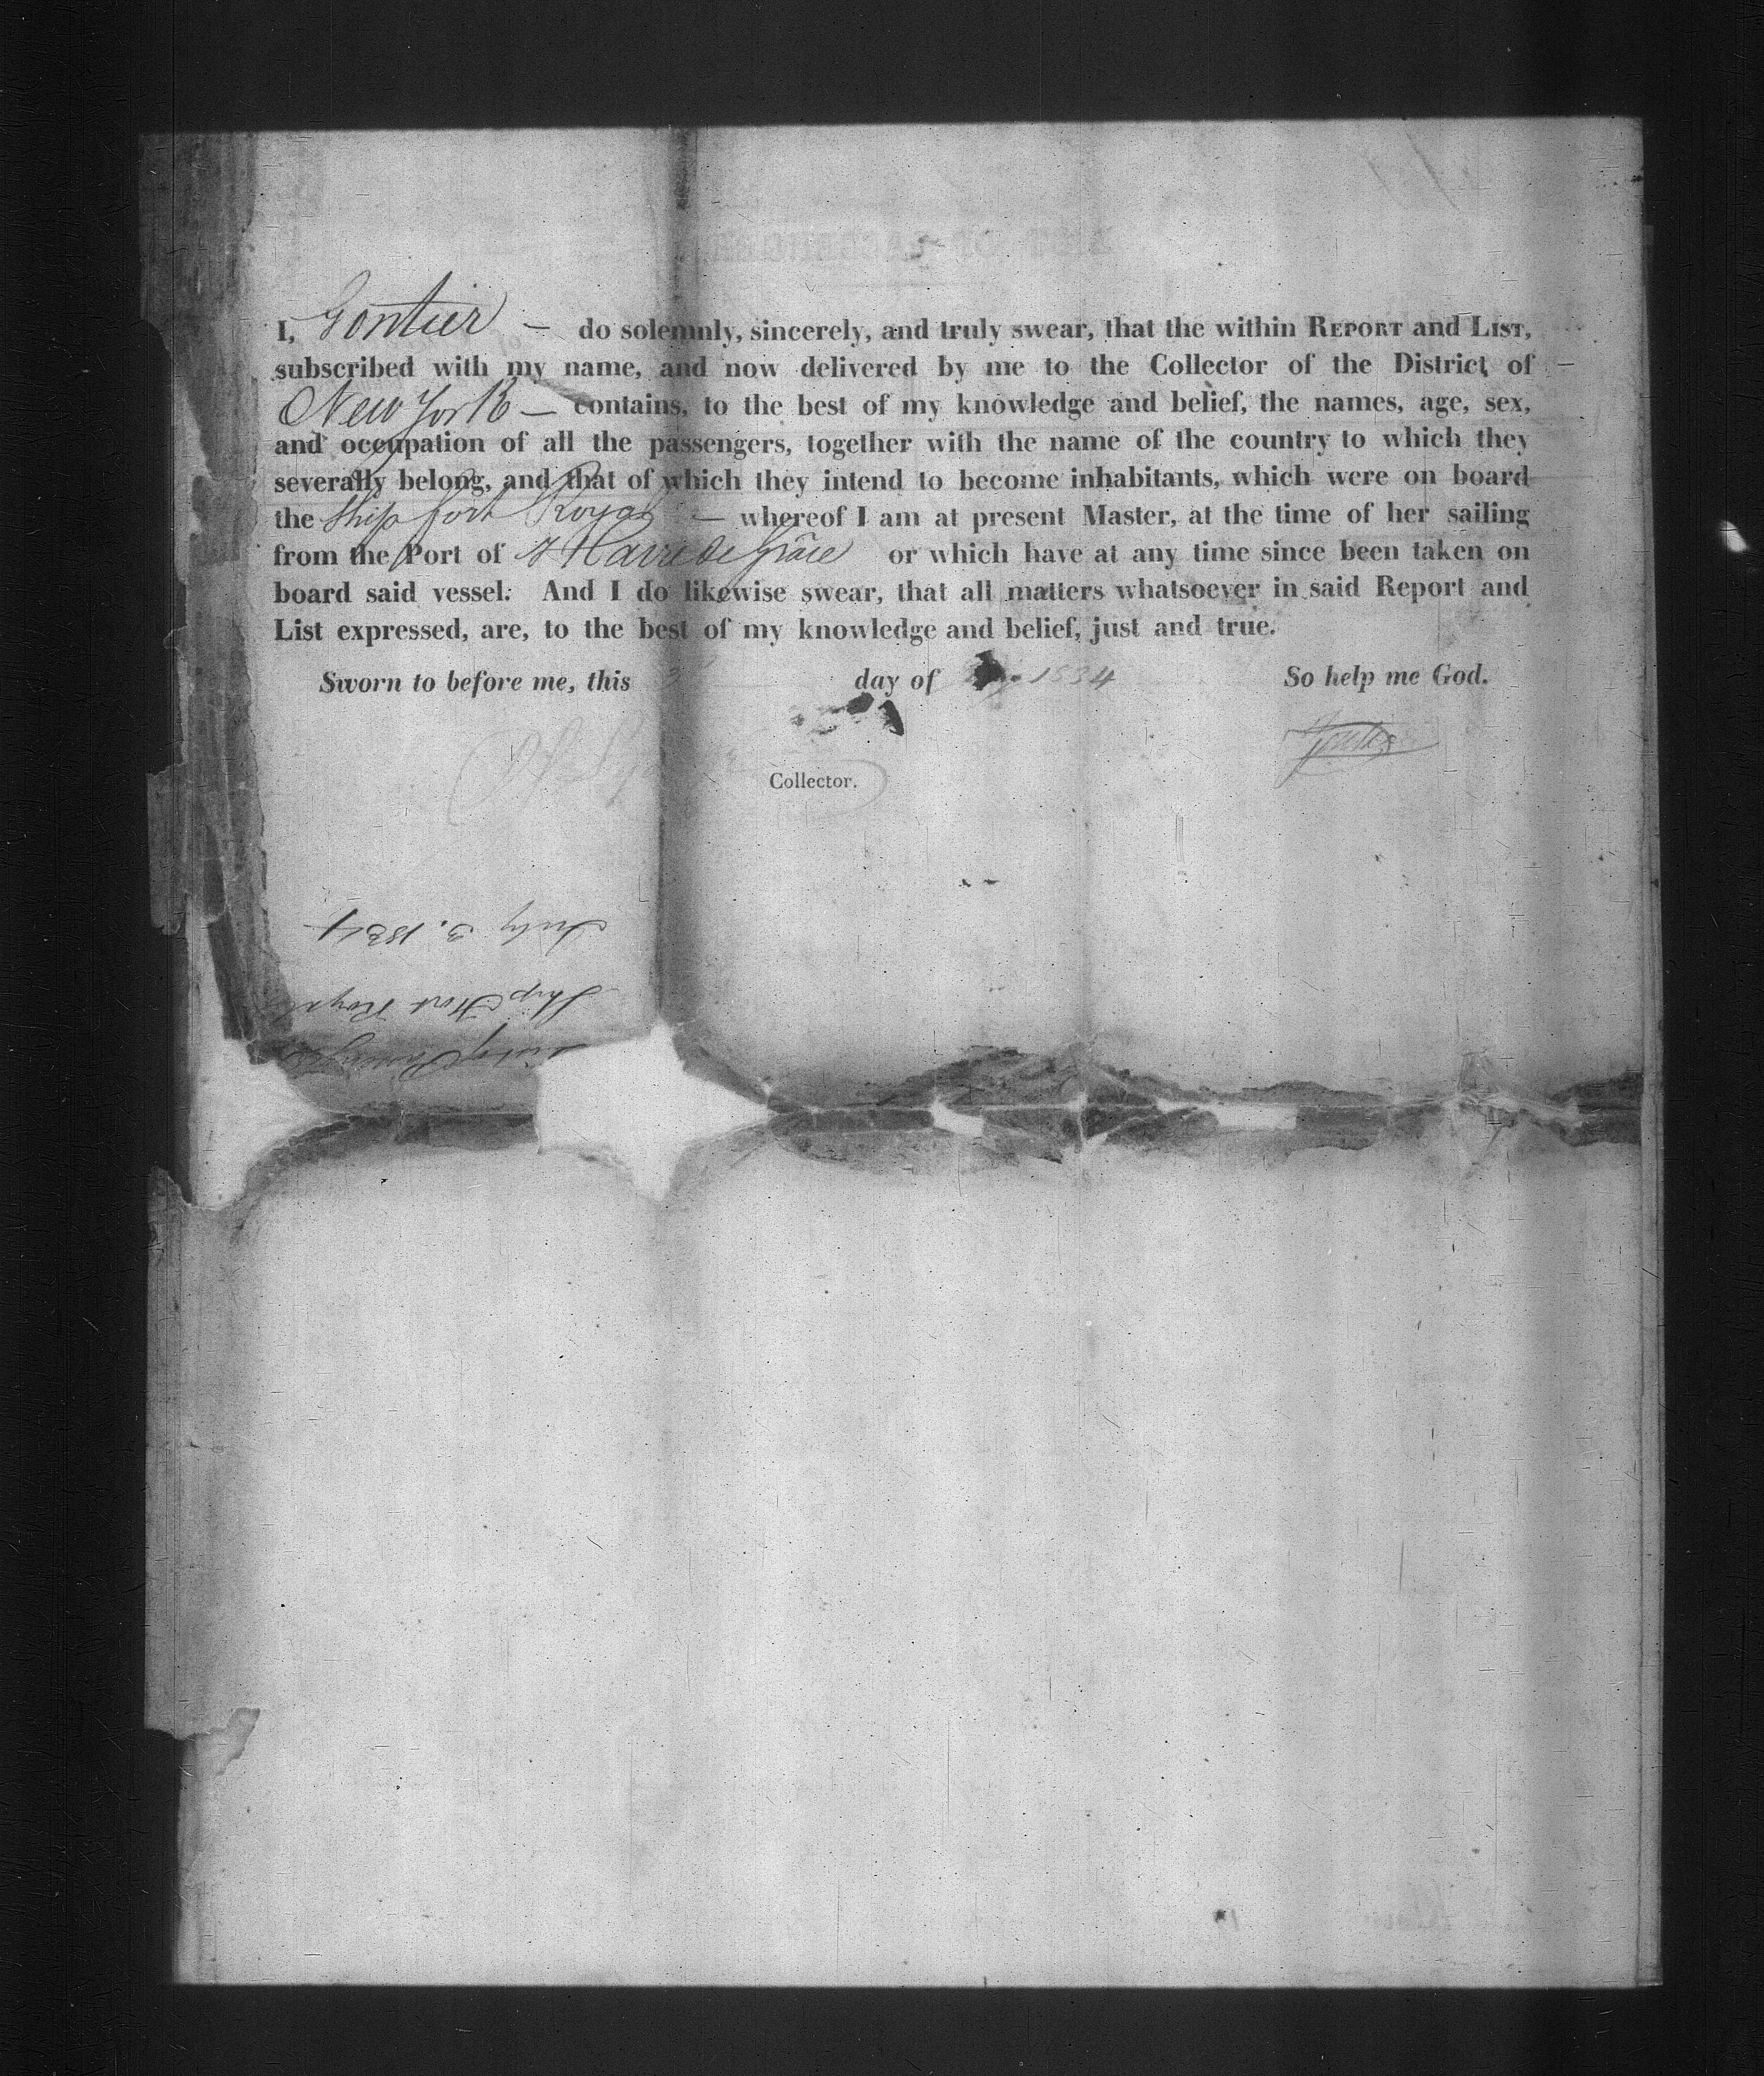 I, Gontier — do solemnly, sincerely, and truly swear, that the within REPORT and LIST,
subscribed with my name, and now delivered by me to the Collector of the District of
New York — contains, to the best of my knowledge and belief, the names, age, sex,
and occupation of all the passengers, together with the name of the country to which they
severally belong, and that of which they intend to become inhabitants, which were on board
the Ship fort Royal — whereof I am at present Master, at the time of her sailing
from the Port of Havre de Grâce or which have at any time since been taken on
board said vessel: And I do likewise swear, that all matters whatsoever in said Report and
List expressed, are, to the best of my knowledge and belief, just and true.
Sworn to before me, this 3 day of 1834 So help me God.
Gontier
Collector.
July 3. 1834
Ship Fort Royal